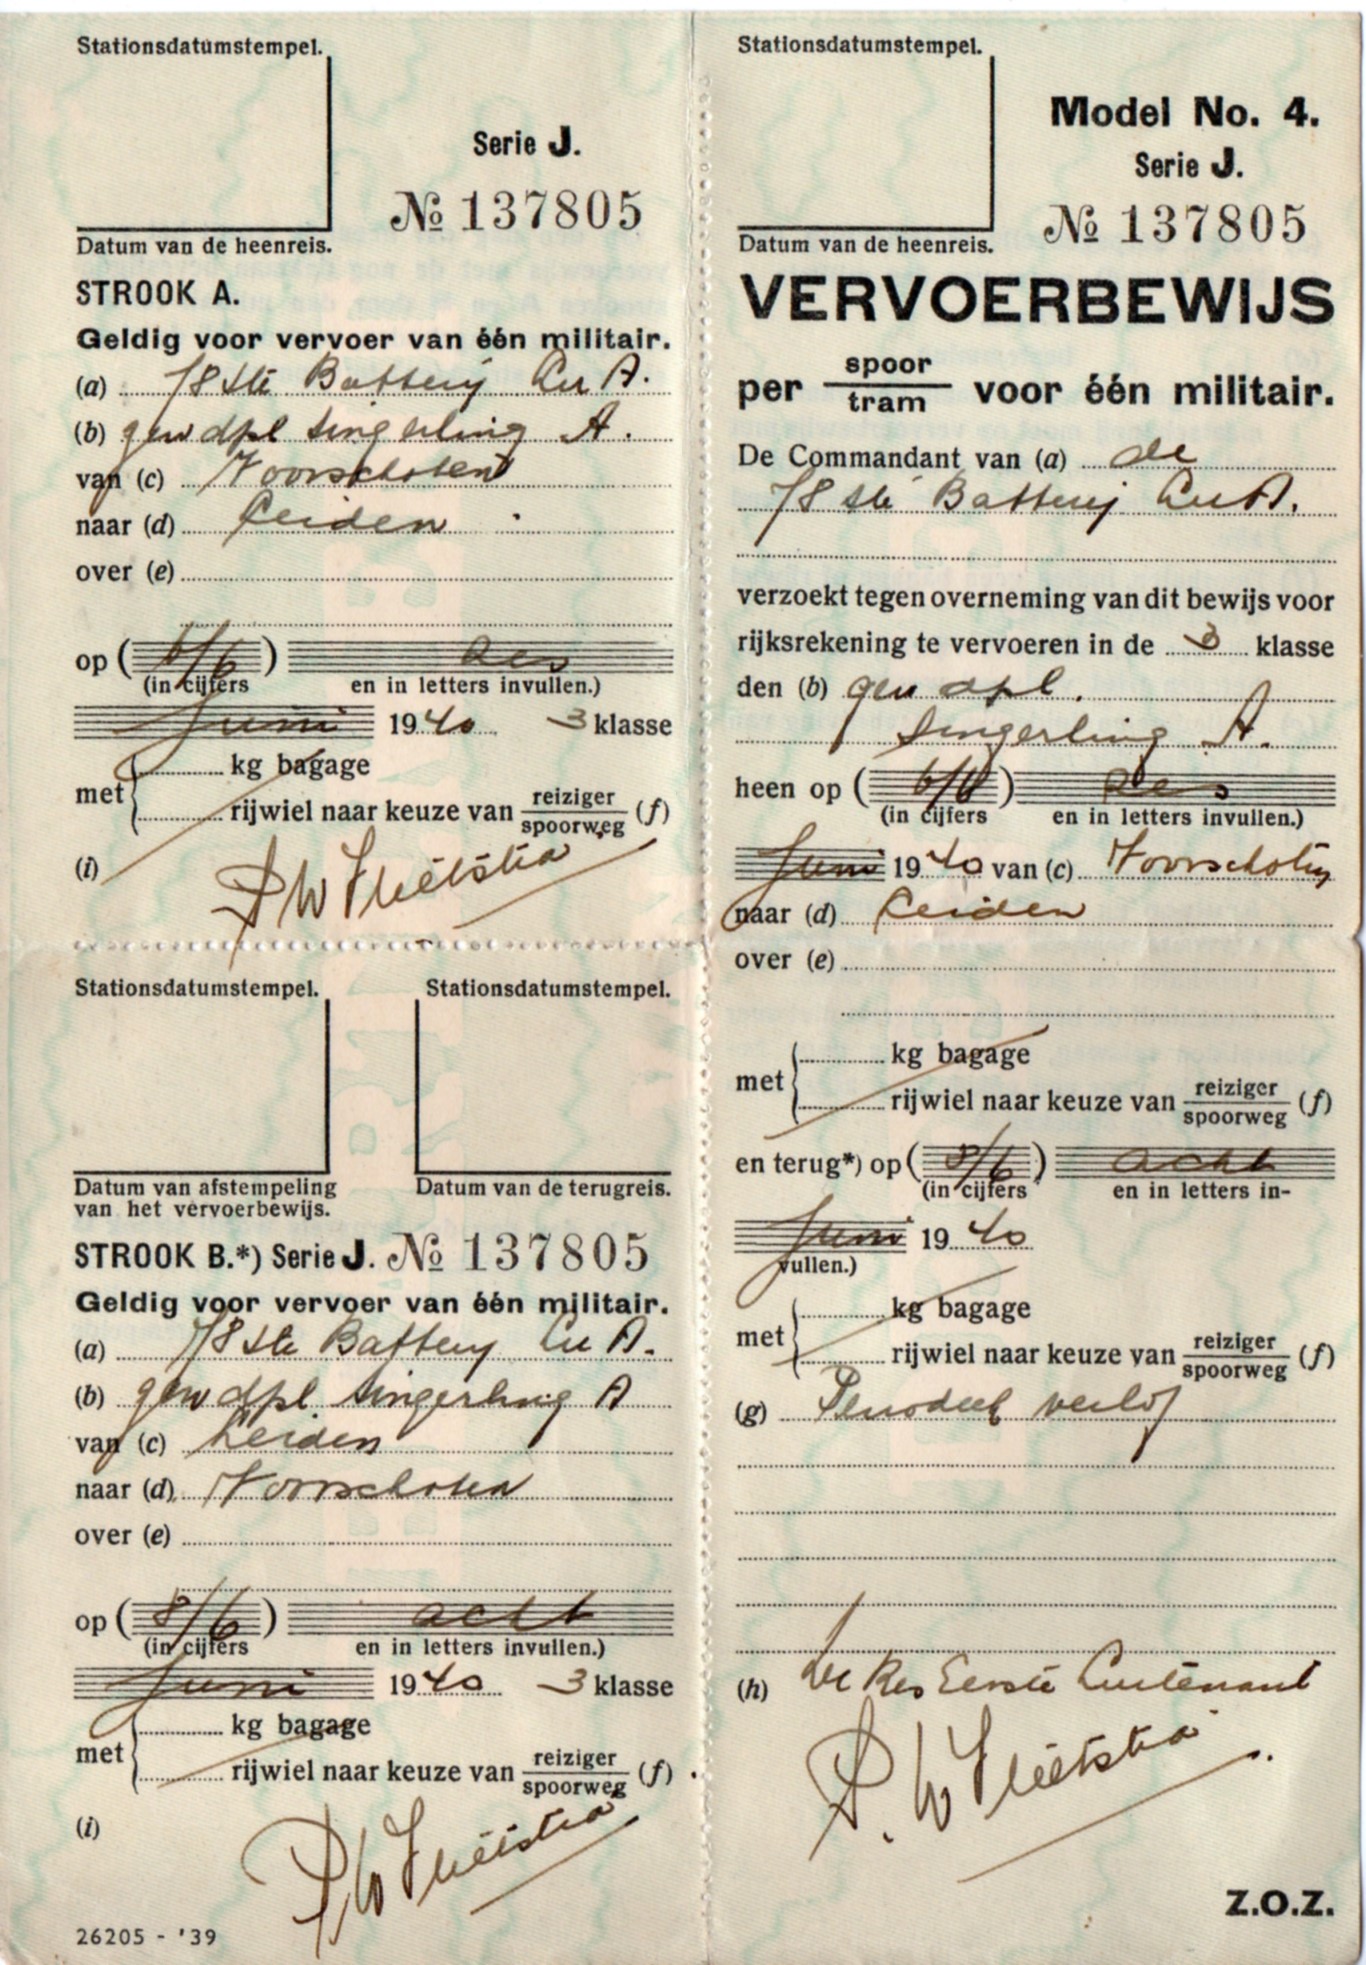 Stationsdatumstempel.
Serie J.
№ 137805
Datum van de heenreis.
STROOK A.
Geldig voor vervoer van één militair.
(a) 78ste Batterij Lu A.
(b) gew dpl Singerling A.
van (c) Voorschoten
naar (d) Leiden
over (e)
op (6/6) zes
(in cijfers en in letters invullen.)
Juni 1940 3 klasse
met kg bagage
rijwiel naar keuze van reiziger/spoorweg (f)
(i)
Stationsdatumstempel. Stationsdatumstempel.
Datum van afstempeling Datum van de terugreis.
van het vervoerbewijs.
STROOK B.*) Serie J. № 137805
Geldig voor vervoer van één militair.
(a) 78ste Batterij Lu A.
(b) gew dpl. Singerling A
van (c) Leiden
naar (d) Voorschoten
over (e)
op (8/6) acht
(in cijfers en in letters invullen.)
Juni 1940 3 klasse
met kg bagage
rijwiel naar keuze van reiziger/spoorweg (f)
(i)
26205 - '39
Stationsdatumstempel.
Model No. 4.
Serie J.
№ 137805
Datum van de heenreis.
VERVOERBEWIJS
per spoor/tram voor één militair.
De Commandant van (a) de
78ste Batterij LuA.
verzoekt tegen overneming van dit bewijs voor
rijksrekening te vervoeren in de 3 klasse
den (b) gew dpl.
Singerling A.
heen op (6/6) zes
(in cijfers en in letters invullen.)
Juni 1940 van (c) Voorschoten
naar (d) Leiden
over (e)
met kg bagage
rijwiel naar keuze van reiziger/spoorweg (f)
en terug*) op (8/6) acht
(in cijfers en in letters in-
Juni 1940
vullen.)
met kg bagage
rijwiel naar keuze van reiziger/spoorweg (f)
(g) Periodiek verlof
(h) De Res Eerste Luitenant
Z.O.Z.